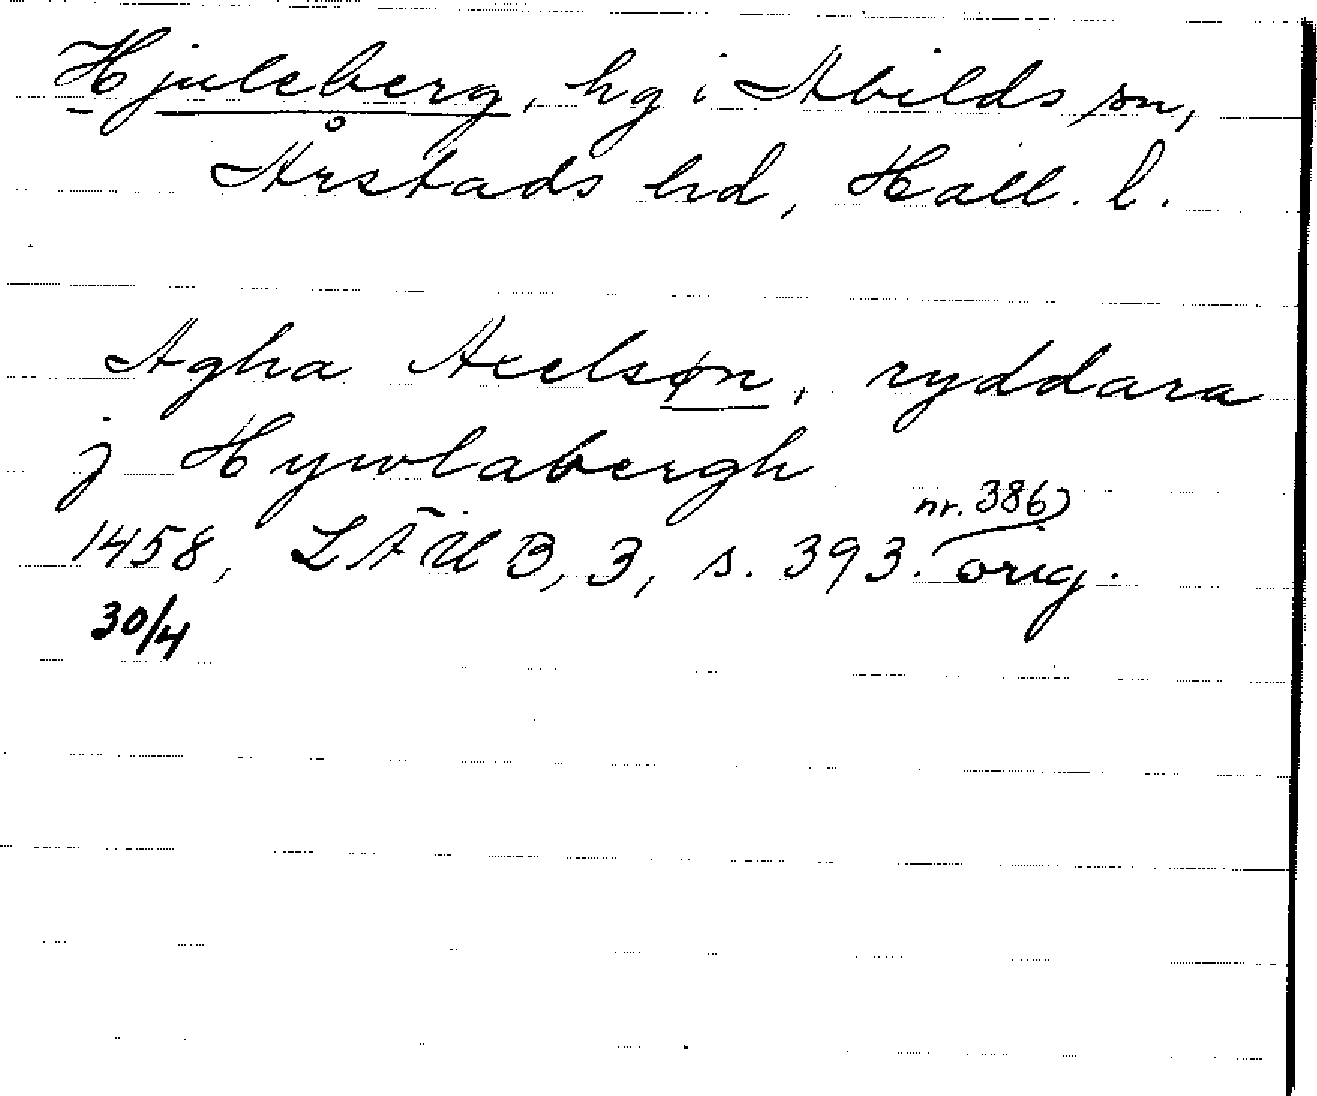 Hjuleberg, hg i Abilds sn,
Årstads hd, Hall. l.
Agha Axelsøn, ryddara
j Hywlabergh
nr. 386)
1458, LÄUB, 3, s. 393. orig.
30/4